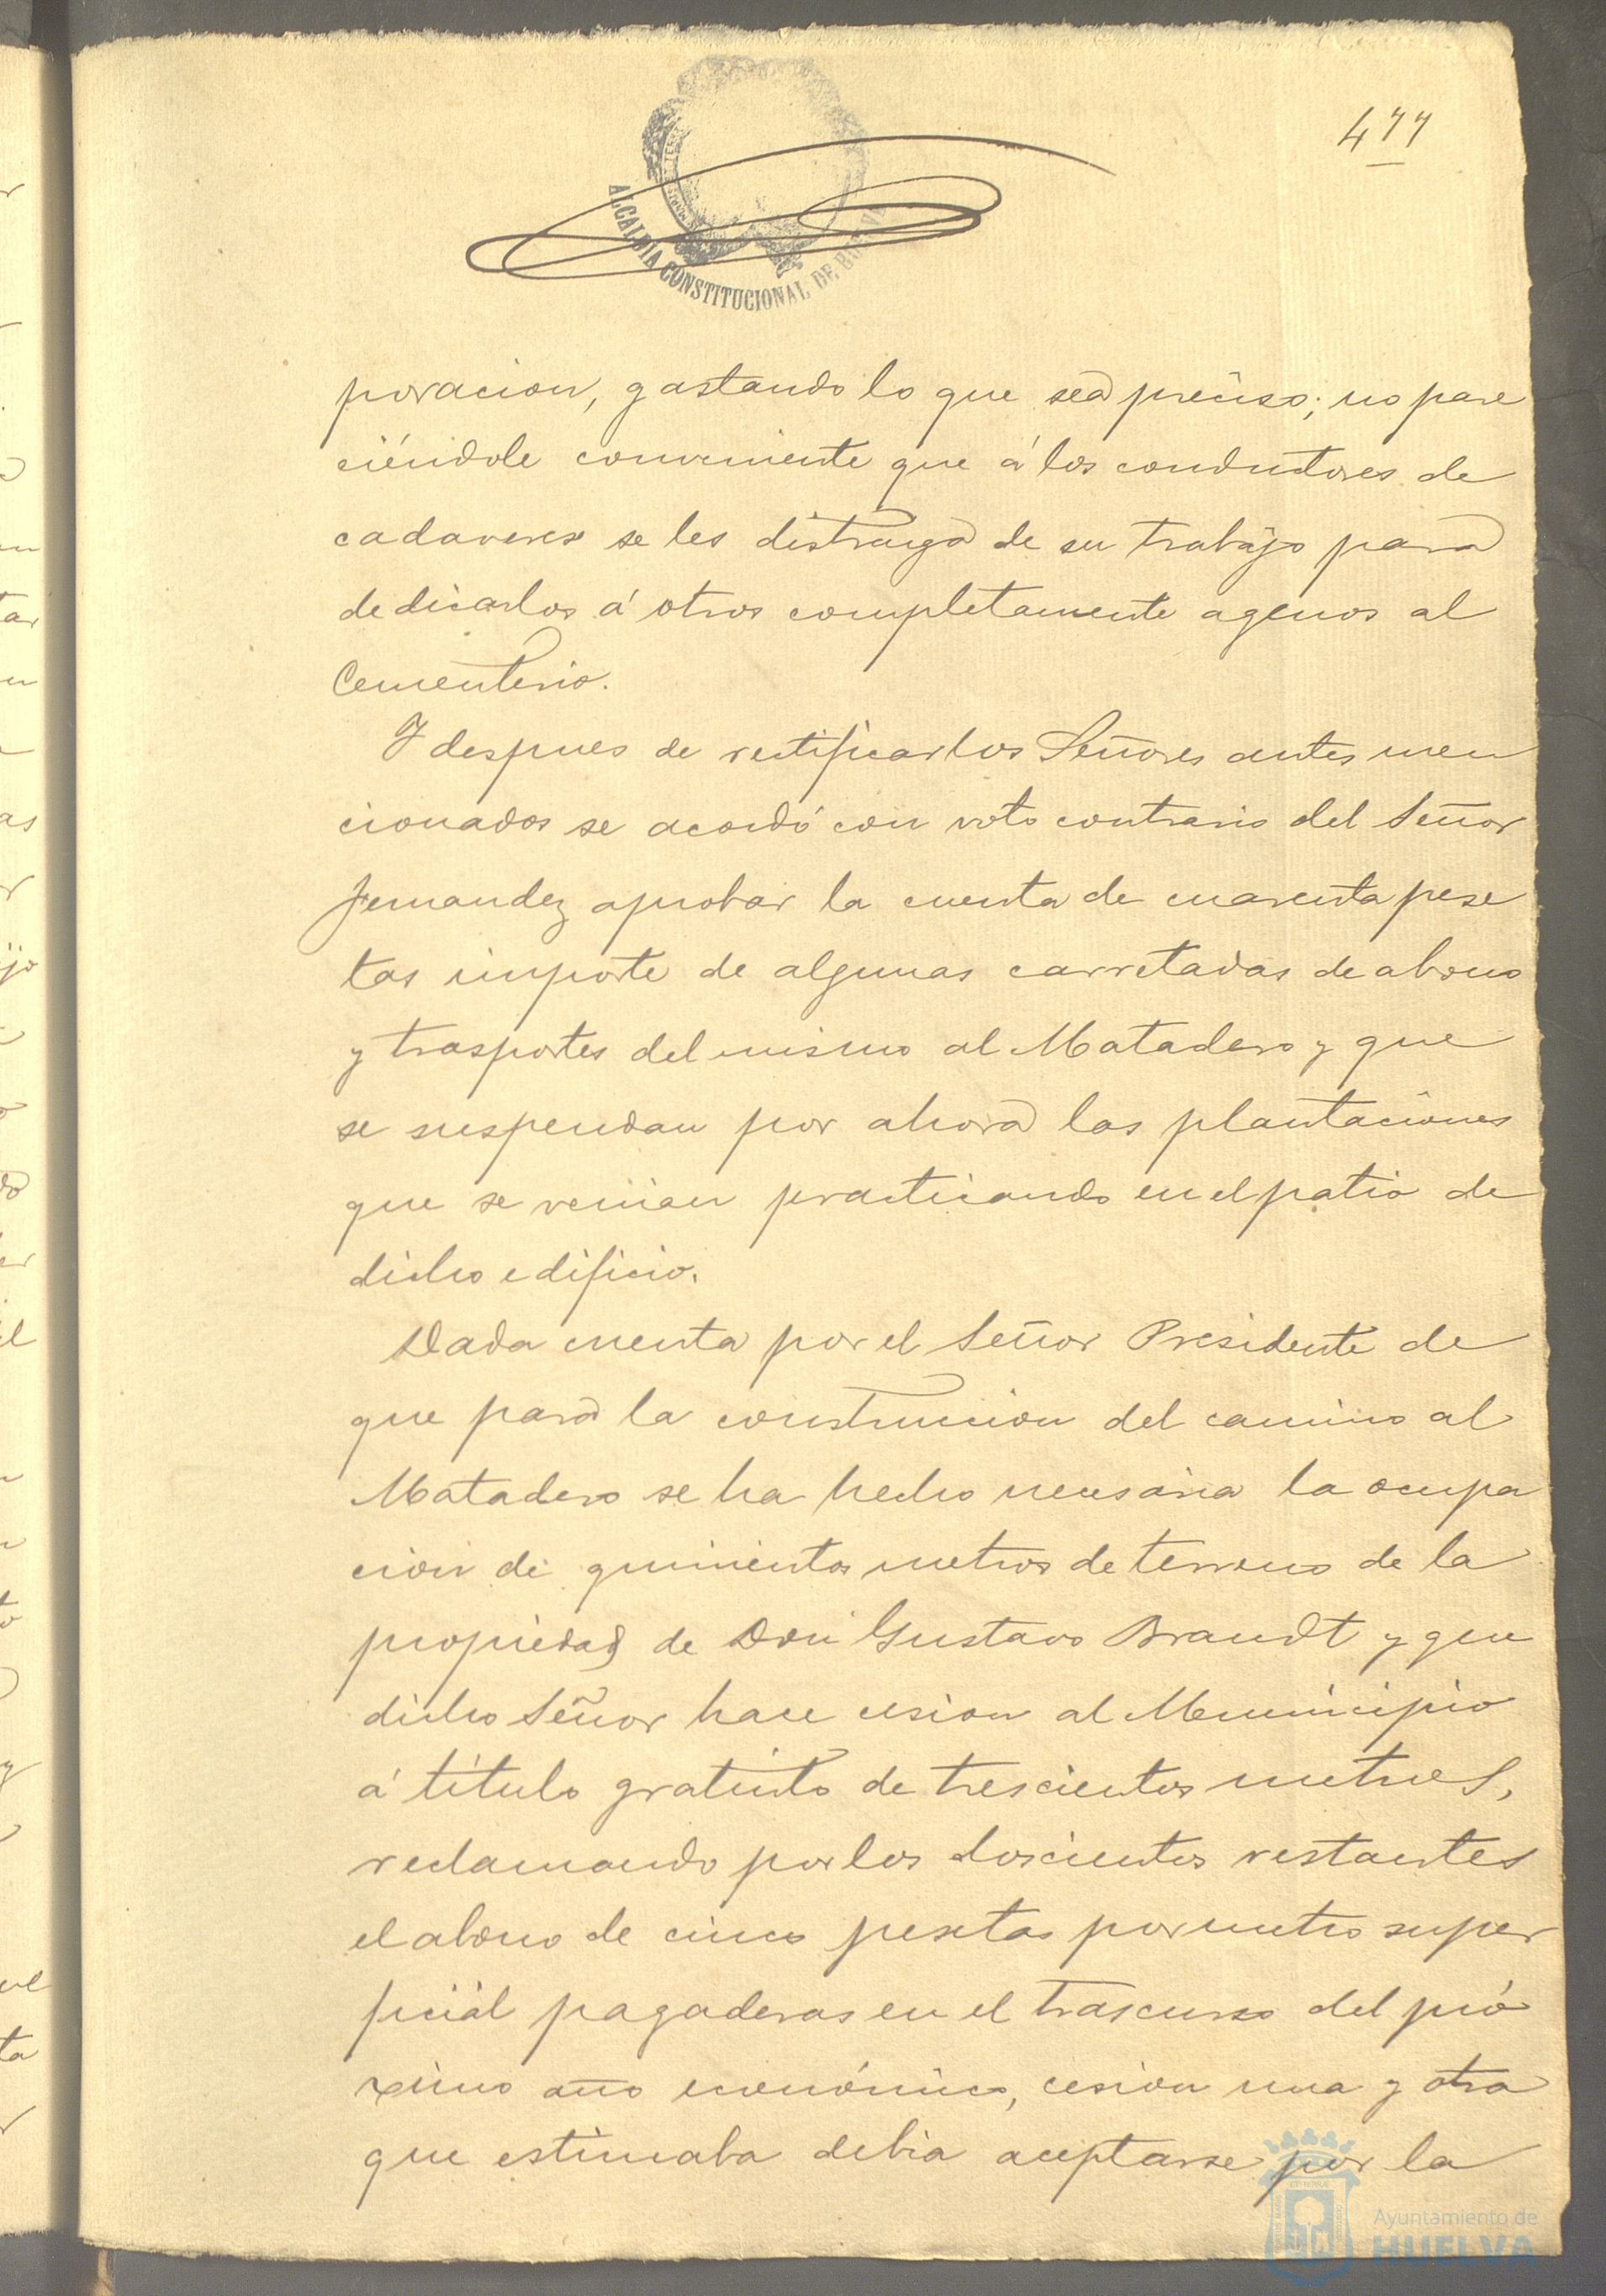 477
ALCALDIA CONSTITUCIONAL DE HUELVA
poracion, gastando lo que sea preciso; no pare
ciéndole conveniente que á los conductores de
cadaveres se les distraiga de su trabajo para
dedicarlos á otros completamente agenos al
Cementerio.
Y despues de rectificar los Señores antes men
cionados se acordó con voto contrario del Señor
Fernandez aprobar la cuenta de cuarenta pese
tas importe de algunas carretadas de abono
y trasportes del mismo al Matadero y que
se suspendan por ahora las plantaciones
que se venian practicando en el patio de
dicho edificio.
Dada cuenta por el Señor Presidente de
que para la construccion del camino al
Matadero se ha hecho necesaria la ocupa
cion de quinientos metros de terreno de la
propiedad de Don Gustavo Brandt y que
dicho Señor hace cesion al Municipio
á título gratuito de trescientos metros,
reclamando por los doscientos restantes
el abono de cinco pesetas por metro super
ficial pagaderas en el trascurso del pró
ximo año económico, cesion una y otra
que estimaba debia aceptarse por la
Ayuntamiento de
HUELVA